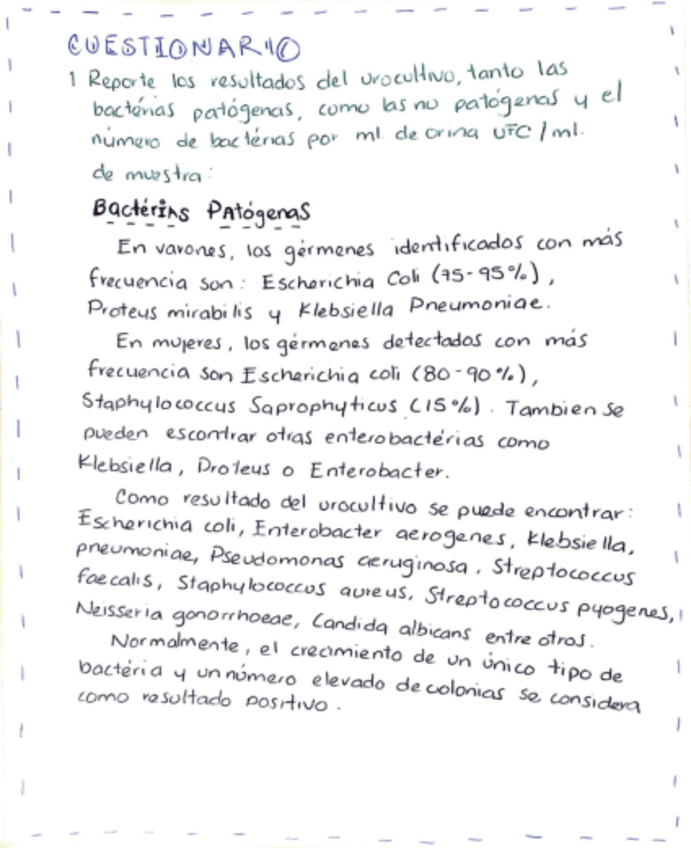 CUESTIONARIO
1 Reporte los resultados del urocultivo, tanto las
bactérias patógenas, como las no patógenas y el
número de bactérias por ml. de orina UFC/ml.
de muestra:
Bactérias Patógenas
En varones, los gérmenes identificados con más
frecuencia son: Escherichia Coli (75-95%),
Proteus mirabilis y Klebsiella Pneumoniae.
En mujeres, los gérmenes detectados con más
frecuencia son Escherichia coli (80-90%),
Staphylococcus Saprophyticus (15%). Tambien se
pueden escontrar otras enterobactérias como
Klebsiella, Proteus o Enterobacter.
Como resultado del urocultivo se puede encontrar:
Escherichia coli, Enterobacter aerogenes, Klebsiella,
pneumoniae, Pseudomonas aeruginosa, Streptococcus
faecalis, Staphylococcus aureus, Streptococcus pyogenes,
Neisseria gonorrhoeae, Candida albicans entre otros.
Normalmente, el crecimiento de un único tipo de
bactéria y un número elevado de colonias se considera
como resultado positivo.